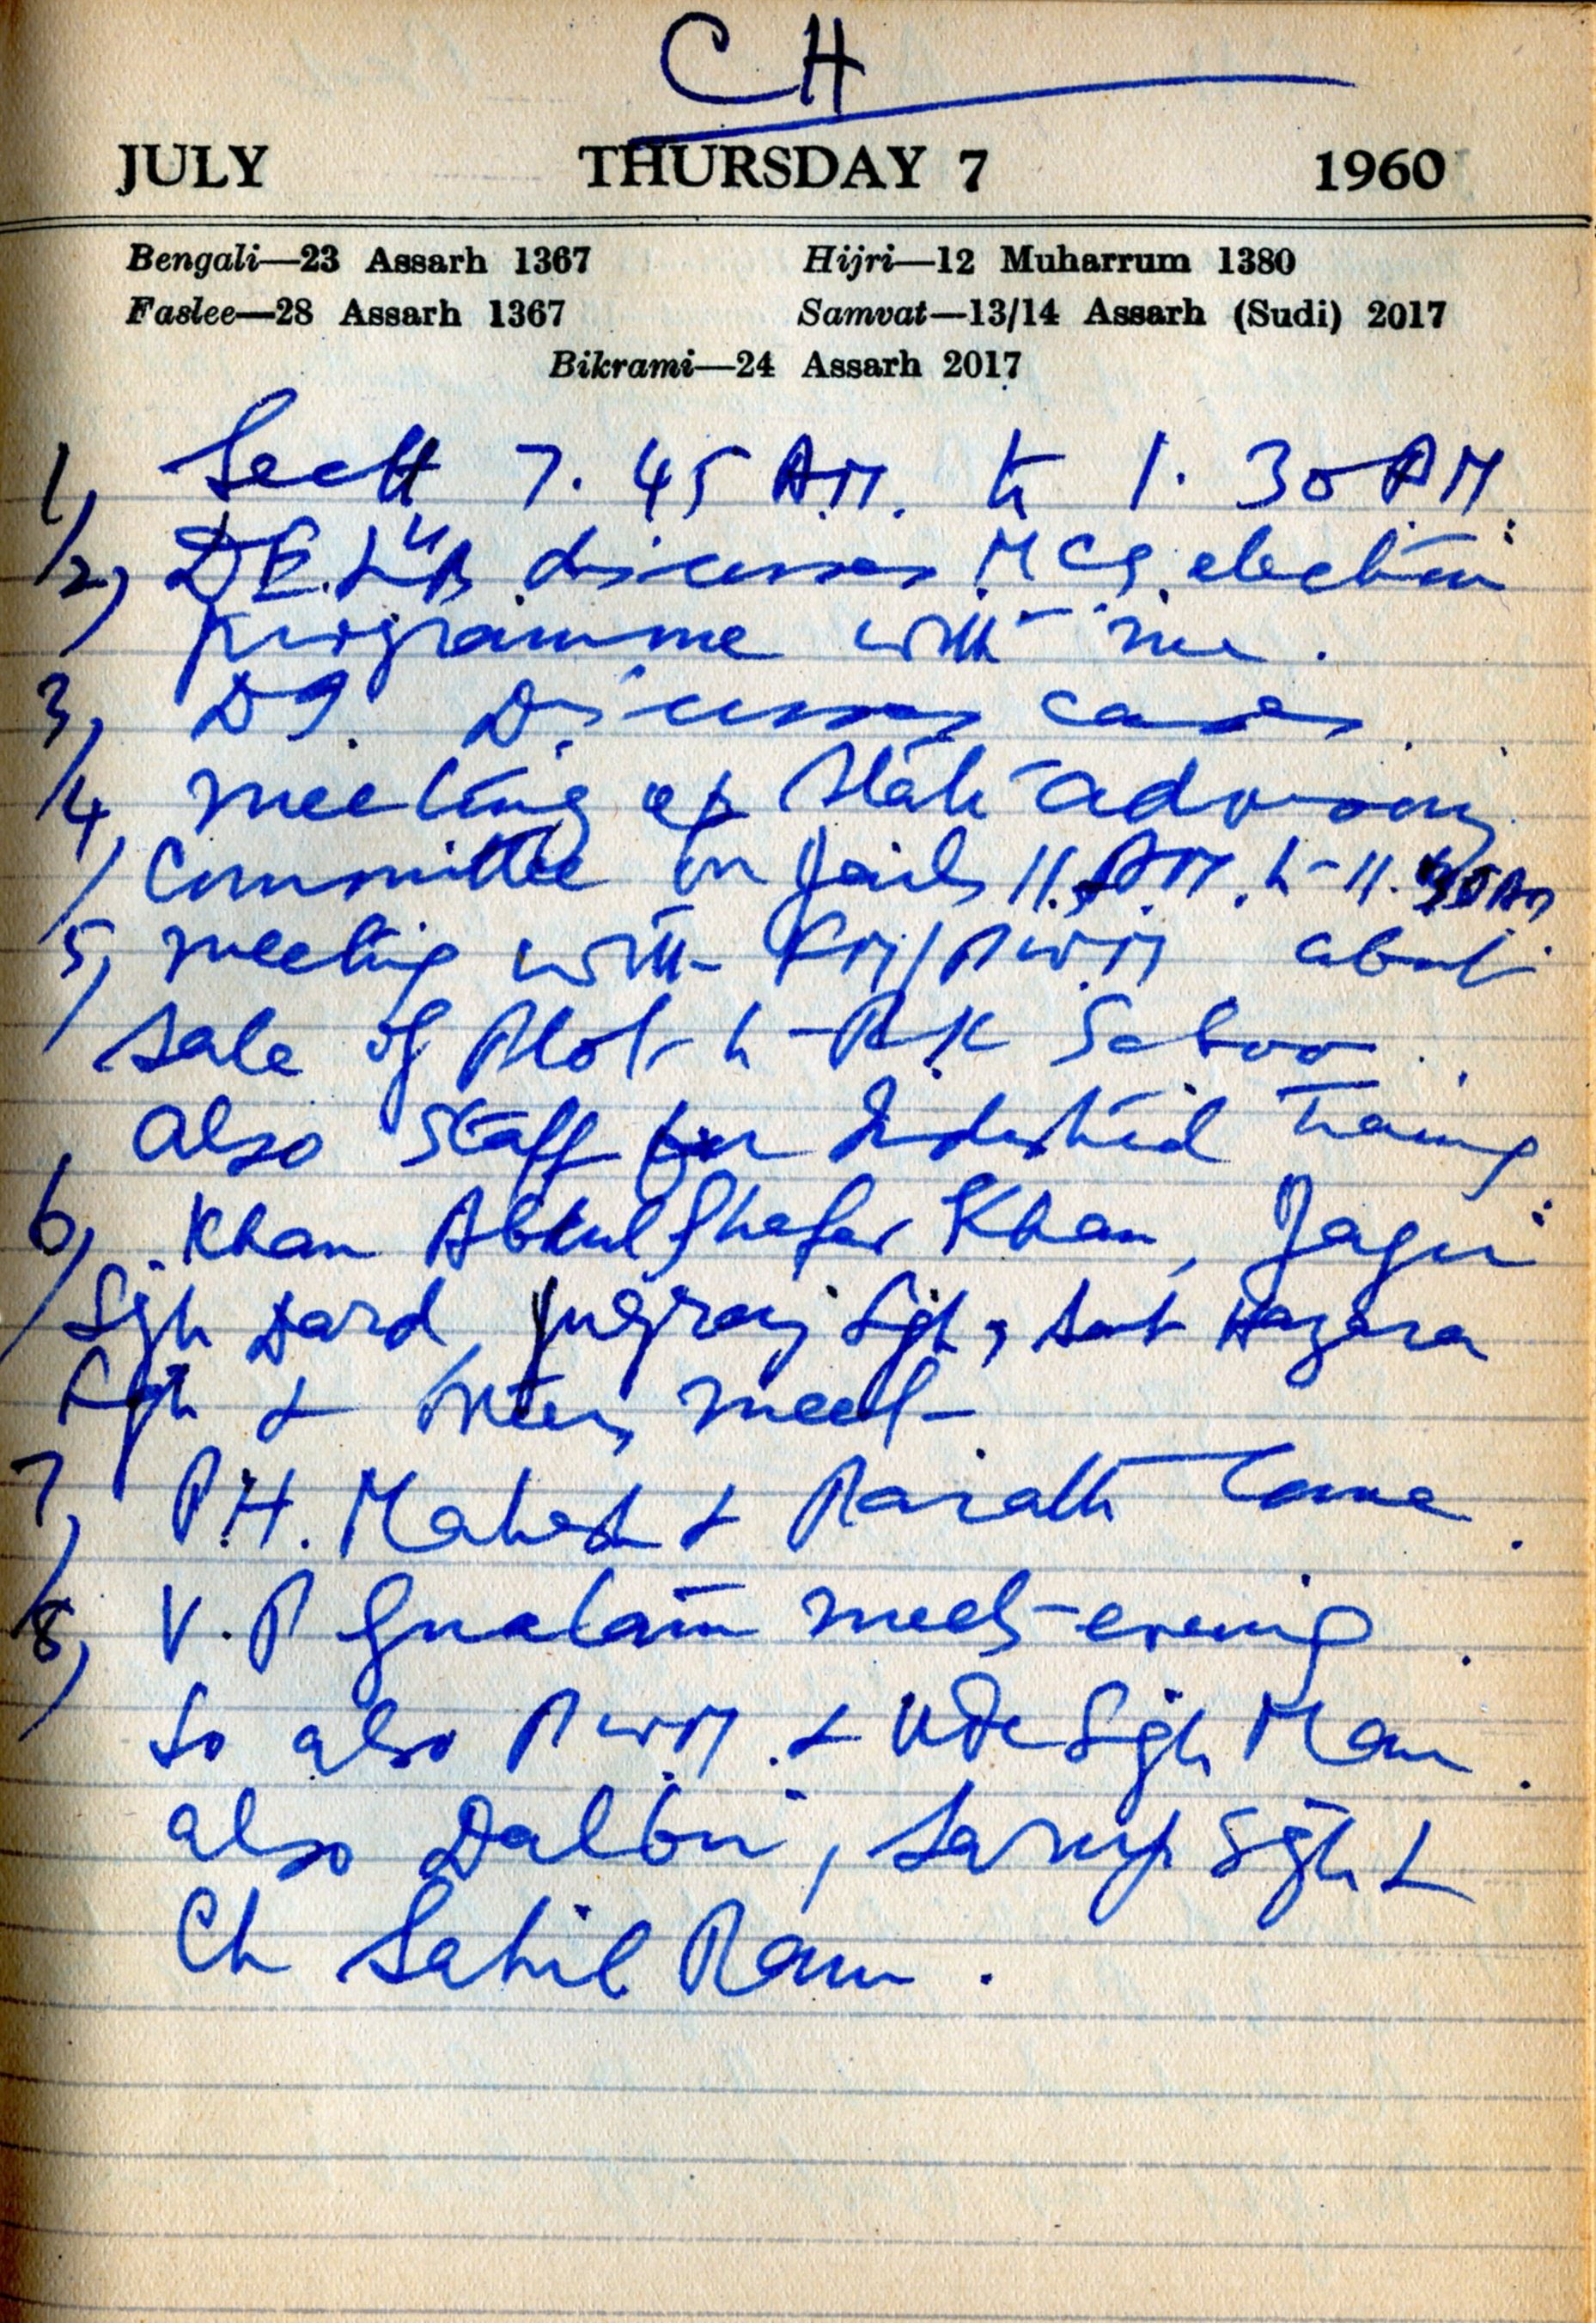 CH
JULY THURSDAY 7 1960
Bengali—23 Assarh 1367 Hijri—12 Muharrum 1380
Faslee—28 Assarh 1367 Samvat—13/14 Assarh (Sudi) 2017
Bikrami—24 Assarh 2017
1, Sectt 7.45 AM. to 1.30 PM.
2, discusses MCs election
programme with me.
3, Discusses cases.
4, meeting of State advisory
Committee on Jails 11. AM. to 11.
5, meeting with FM/PWM about
sale of Plot to RK Saboo.
also Staff for Industrial Training
6, Khan Abdul Ghafar Khan, Jagir
Sgh Dard, Jugraj Sgh, Sant Hazara
Sgh & others meet
7, P.H. & come.
8, V.P Gualam meets evening.
so also PWM. & Ude Sgh Man.
also Dalbir, Sarup Sgh &
Ch Sahil Ram.